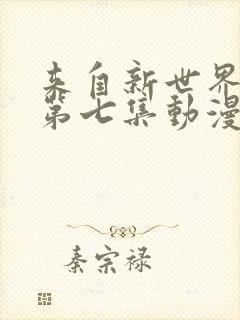 来自新世界
第七集動漫
秦宗禄